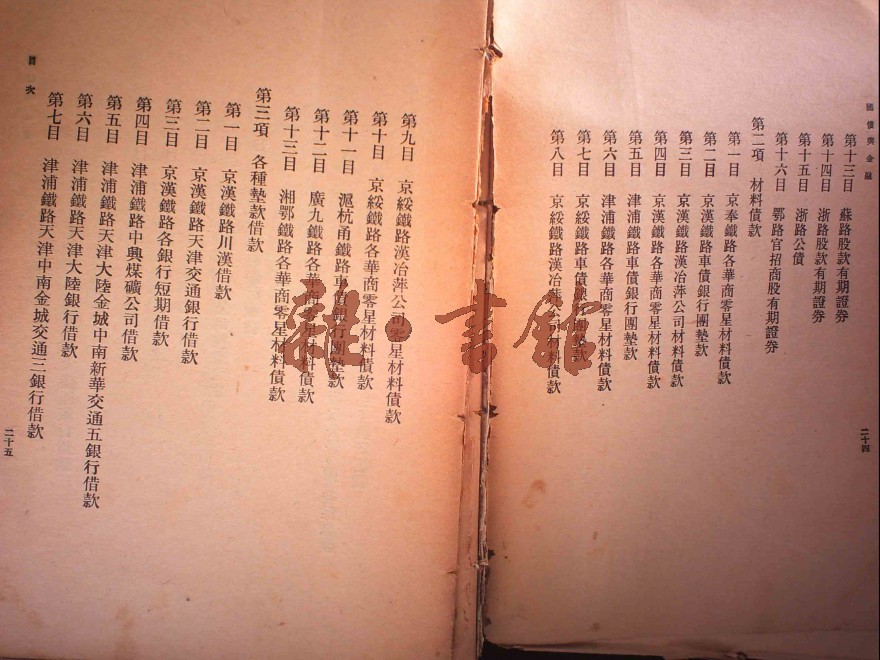 國債與金融
第十三目 蘇路股款有期證券
第十四目 浙路股款有期證券
第十五目 浙路公債
第十六目 鄂路官招商股有期證券
第二項 材料債款
第一目 京奉鐵路各華商零星材料債款
第二目 京漢鐵路車債銀行團墊款
第三目 京漢鐵路漢冶萍公司材料債款
第四目 京漢鐵路各華商零星材料債款
第五目 津浦鐵路車債銀行團墊款
第六目 津浦鐵路各華商零星材料債款
第七目 京綏鐵路車債銀行團墊款
第八目 京綏鐵路漢冶萍公司材料債款
二十四
第九目 京綏鐵路漢冶萍公司零星材料債款
第十目 京綏鐵路各華商零星材料債款
第十一目 滬杭甬鐵路車債銀行團墊款
第十二目 廣九鐵路各華商零星材料債款
第十三目 湘鄂鐵路各華商零星材料債款
第三項 各種墊款借款
第一目 京漢鐵路川漢借款
第二目 京漢鐵路天津交通銀行借款
第三目 京漢鐵路各銀行短期借款
第四目 津浦鐵路中興煤礦公司借款
第五目 津浦鐵路天津大陸金城中南新華交通五銀行借款
第六目 津浦鐵路天津大陸銀行借款
第七目 津浦鐵路天津中南金城交通三銀行借款
目次
二十五
雜·書館